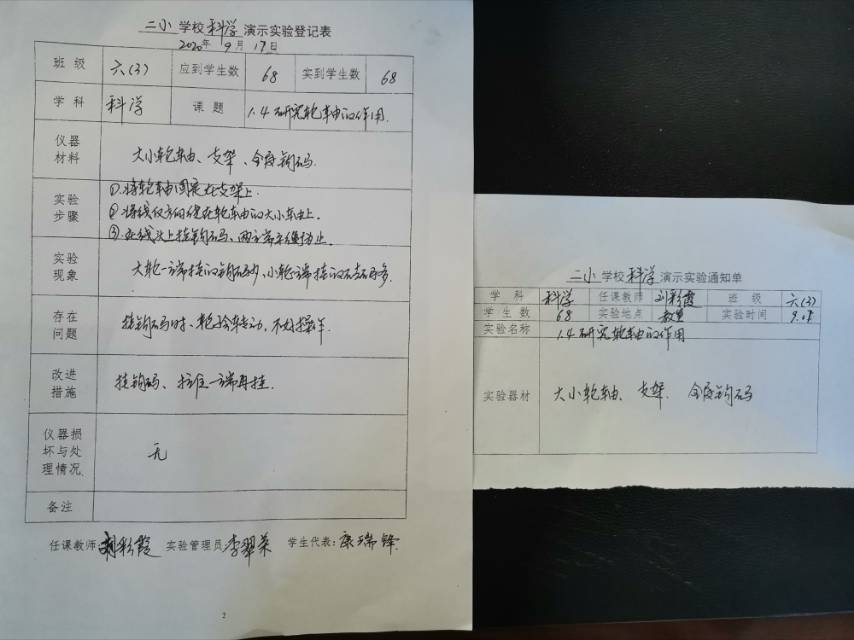 二小 学校 科学 演示实验登记表
2020年 9月 17日
班 级 六(3) 应到学生数 68 实到学生数 68
学 科 科学 课 题 1.4研究轮轴的作用.
仪器材料 大小轮轴、支架、钩码.
实验步骤 ①.将轮轴固定在支架上.
②.将线绳在轮轴的大小轮上.
③.在线头上挂钩码、两端平衡为止.
实验现象 大轮一端挂的钩码少、小轮一端挂的钩码多.
存在问题 挂钩码时、轮会转动、不好操作.
改进措施 挂钩码、拉住一端再挂.
仪器损坏与处理情况 无
备注
任课教师 刘彩霞 实验管理员 李翠荣 学生代表: 康瑞锋
2
二小 学校 科学 演示实验通知单
学 科 科学 任课教师 刘彩霞 班 级 六(3)
学 生 数 68 实验地点 教室 实验时间
实验名称 1.4研究轮轴的作用
实验器材 大小轮轴、支架、钩码